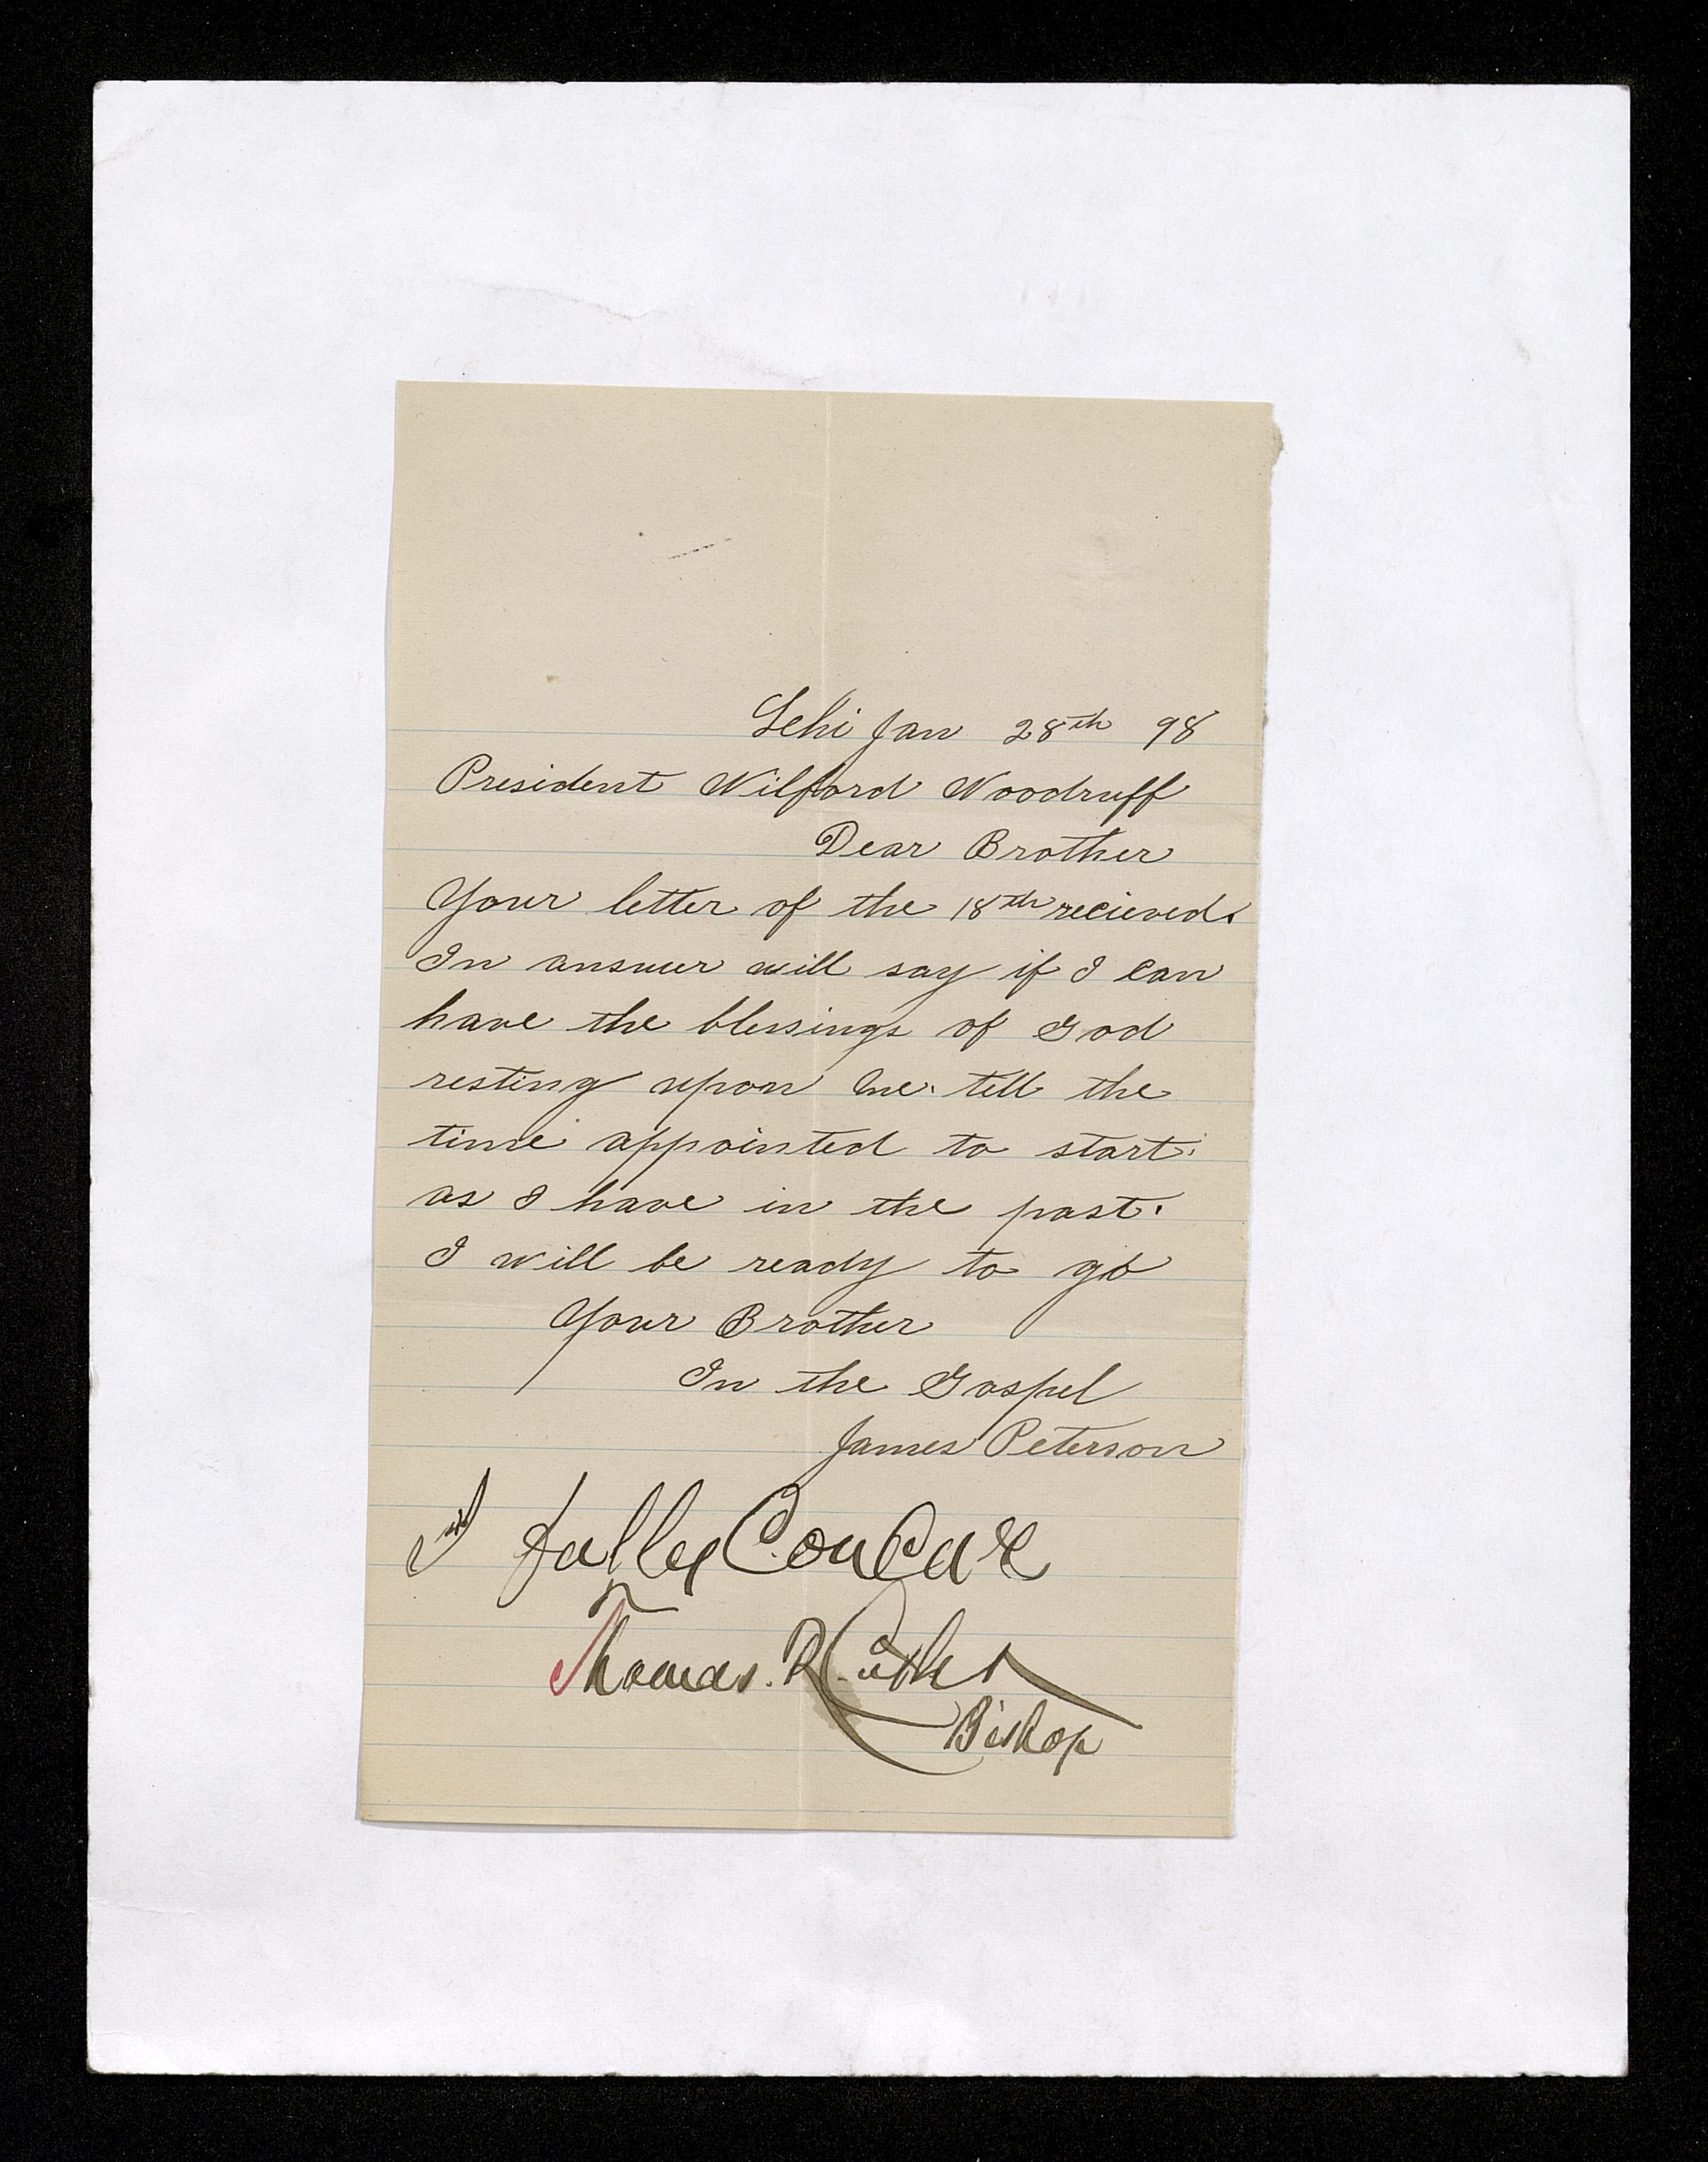 Lehi Jan 28th 98
President Wilford Woodruff
Dear Brother
Your letter of the 18th recieved.
In answer will say if I can
have the blessings of God
resting upon me. tell the
time appointed to start.
as I have in the past.
I will be ready to go
Your Brother
In the Gospel
James Peterson
I fulley Concur
Thomas. R Cutler
Bishop